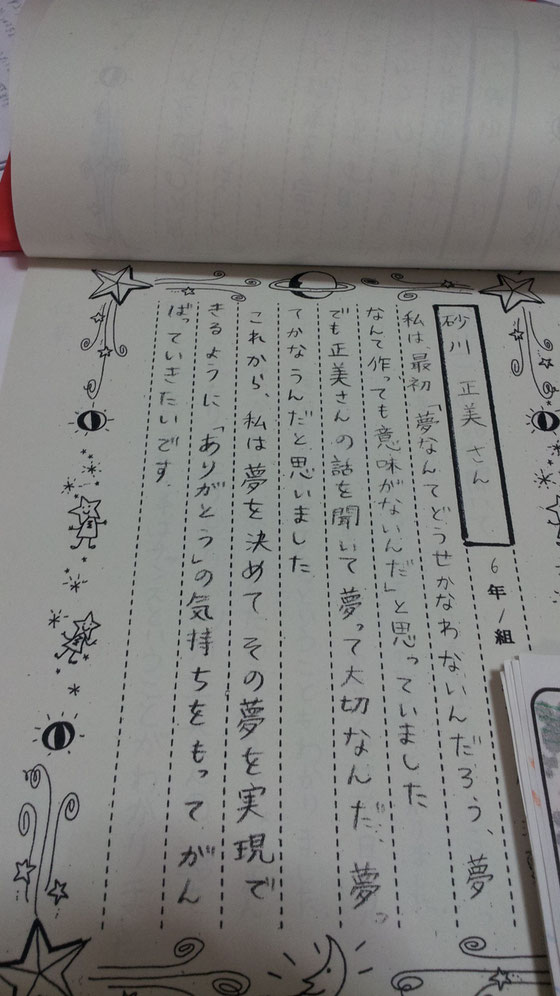 砂川 正美 さん
6年1組
私は、最初「夢なんてどうせかなわないんだろう、夢
なんて作っても意味がないんだ」と思っていました
でも正美さんの話を聞いて夢って大切なんだ…夢っ
てかなうんだと思いました
これから、私は夢を決めて その夢を実現で
きるように「ありがとう」の気持ちをもって がん
ばっていきたいです.